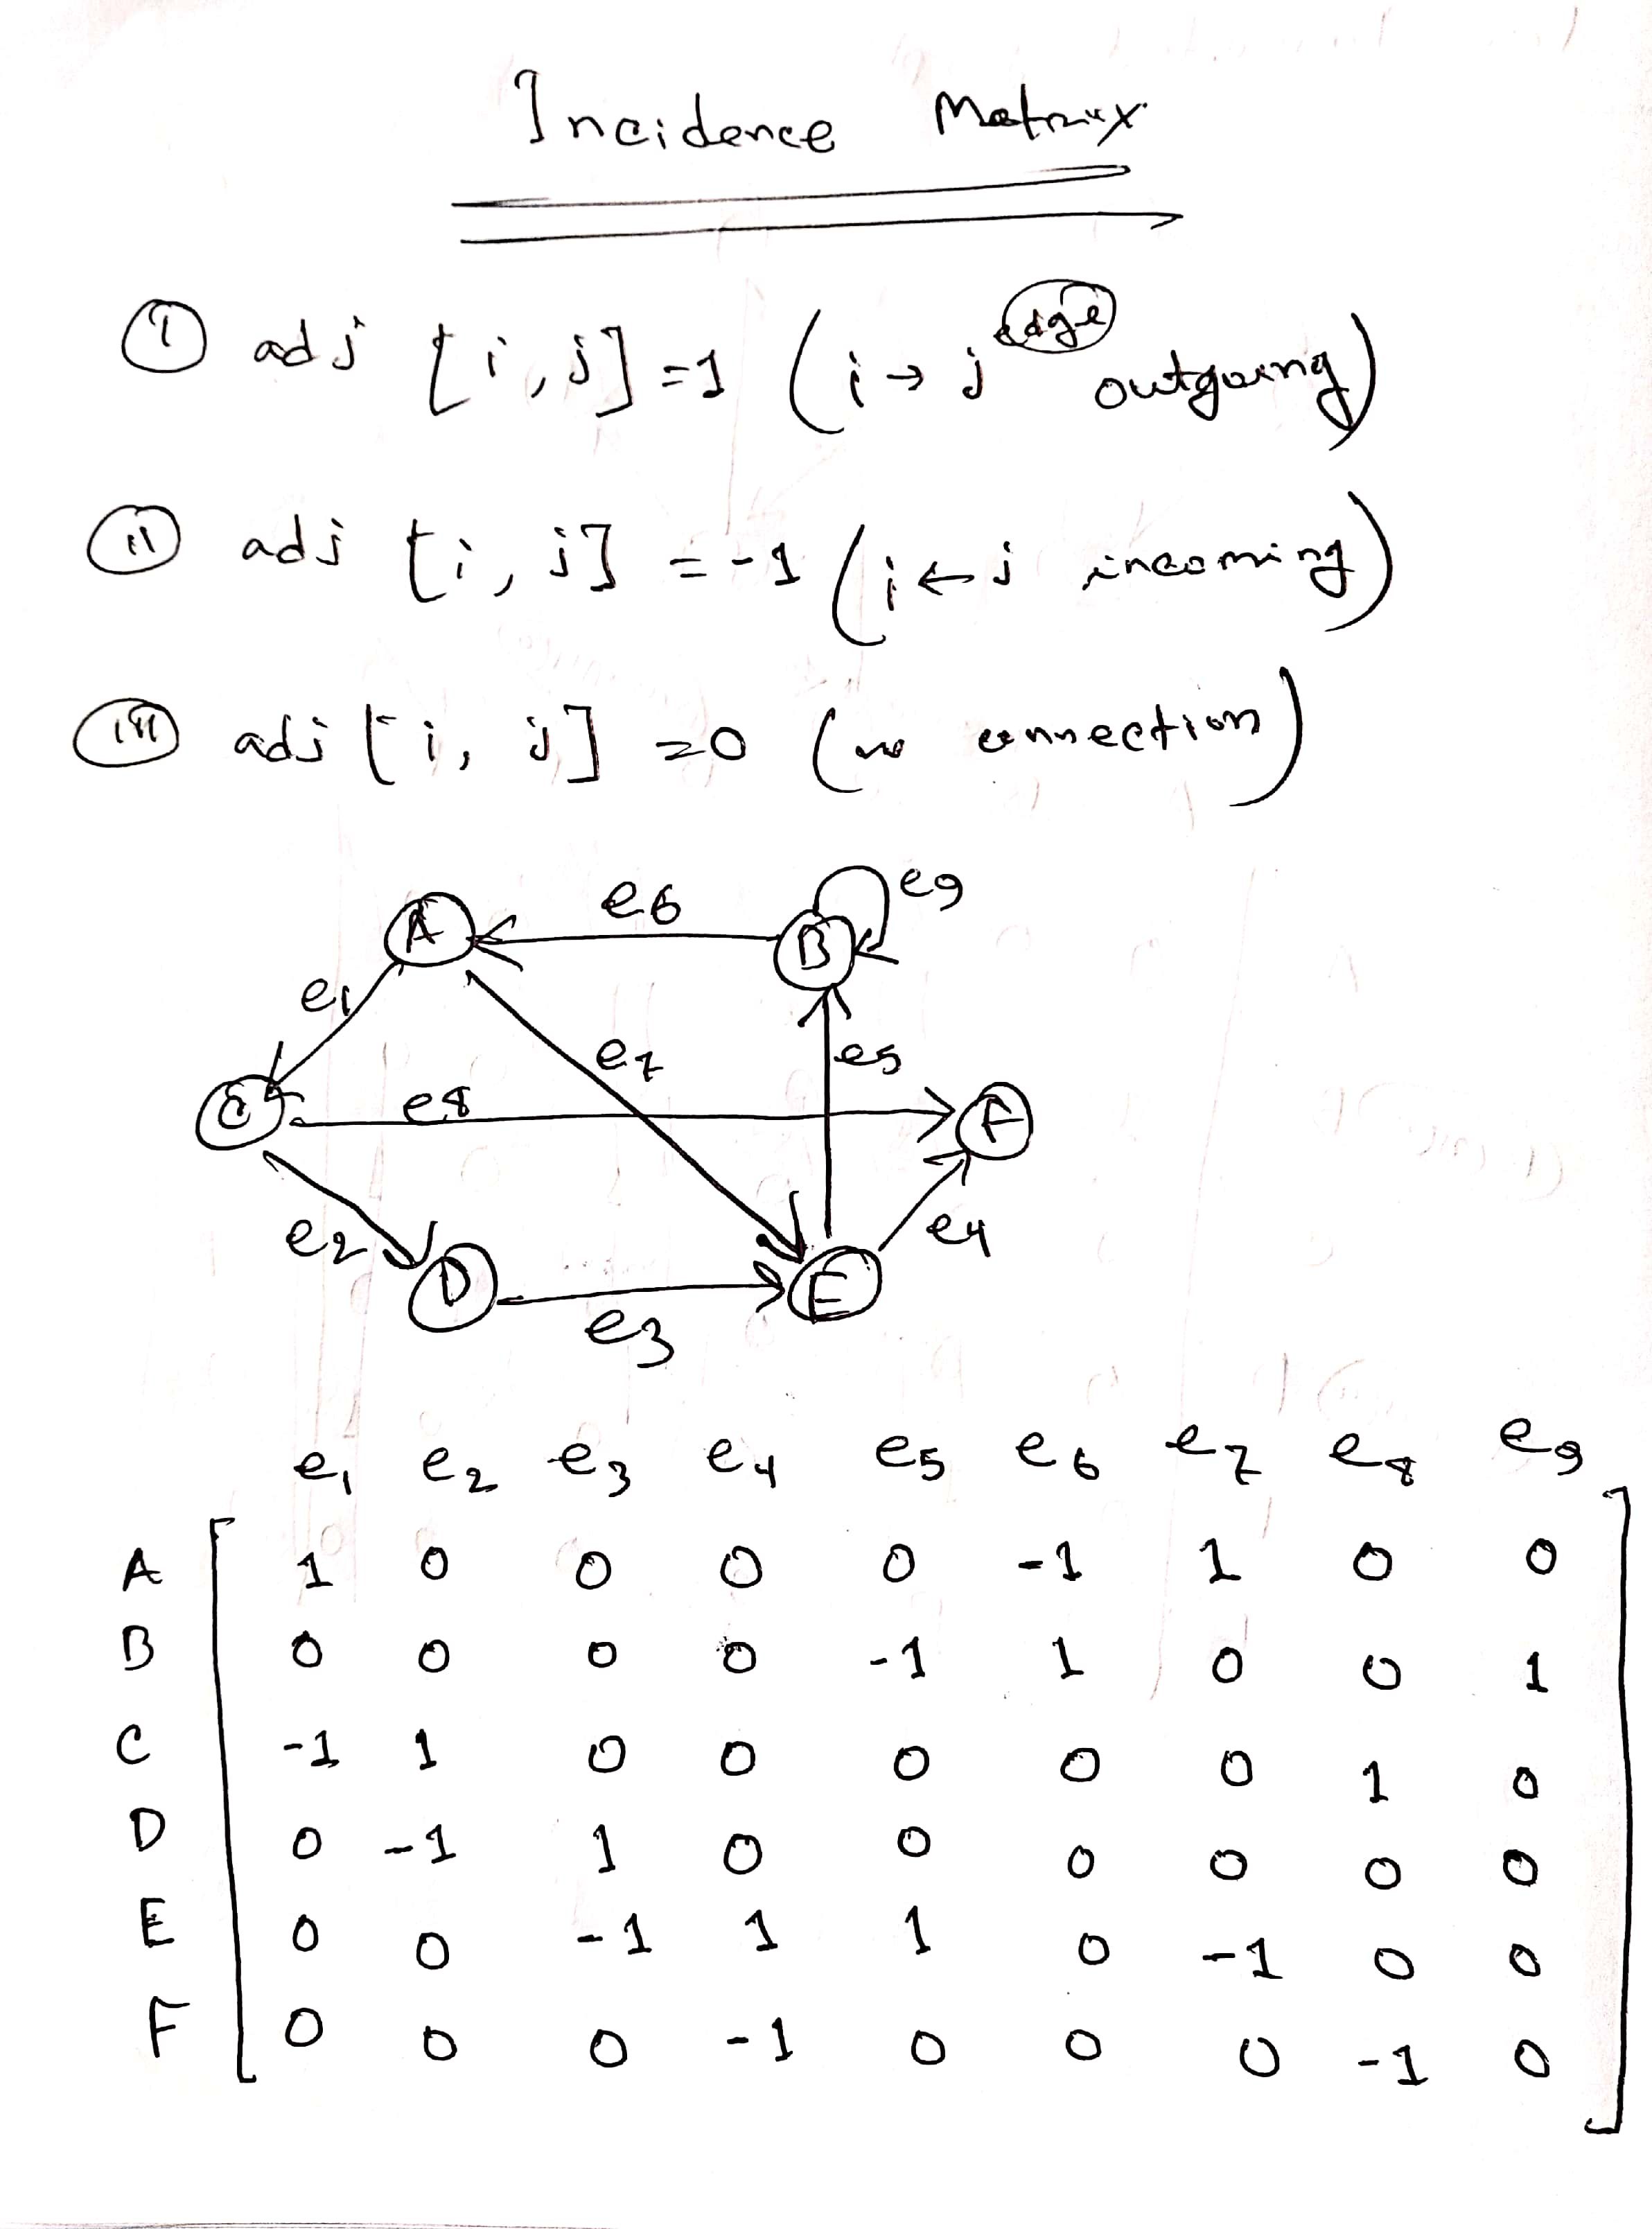 Incidence Matrix
(i) adj [i, j] = 1 (i → j edge outgoing)
(ii) adj [i, j] = -1 (i ← j incoming)
(iii) adj [i, j] = 0 (no connection)
e6 e9
A B
e1
e7 e5
C e8 F
e2 e4
D E
e3
e1 e2 e3 e4 e5 e6 e7 e8 e9
A 1 0 0 0 0 -1 1 0 0
B 0 0 0 0 -1 1 0 0 1
C -1 1 0 0 0 0 0 1 0
D 0 -1 1 0 0 0 0 0 0
E 0 0 -1 1 1 0 -1 0 0
F 0 0 0 -1 0 0 0 -1 0